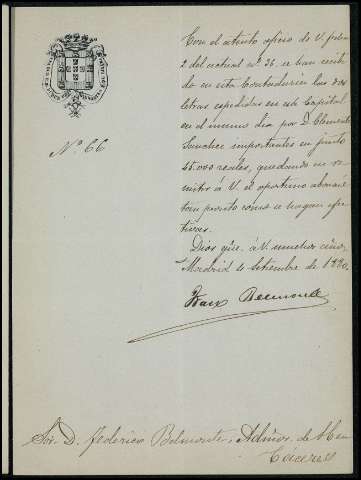 Con el atento oficio de V. fecha
2 del actual nº 36. se han recibi
do en esta Contaduría las dos
letras espedidas en esa Capital
en el mismo dia por D. Clemente
Sanchez importantes en junto
45.000 reales, quedando en re
mitir á V. el oportuno abonaré
tan pronto como se hagan efec
tivas.
Dios gûe. á V. muchos años.
Madrid 4 Setiembre de 1880.
Nº 66
Belmonte
Sor. D. Federico Belmonte, Admor. de
Cáceres